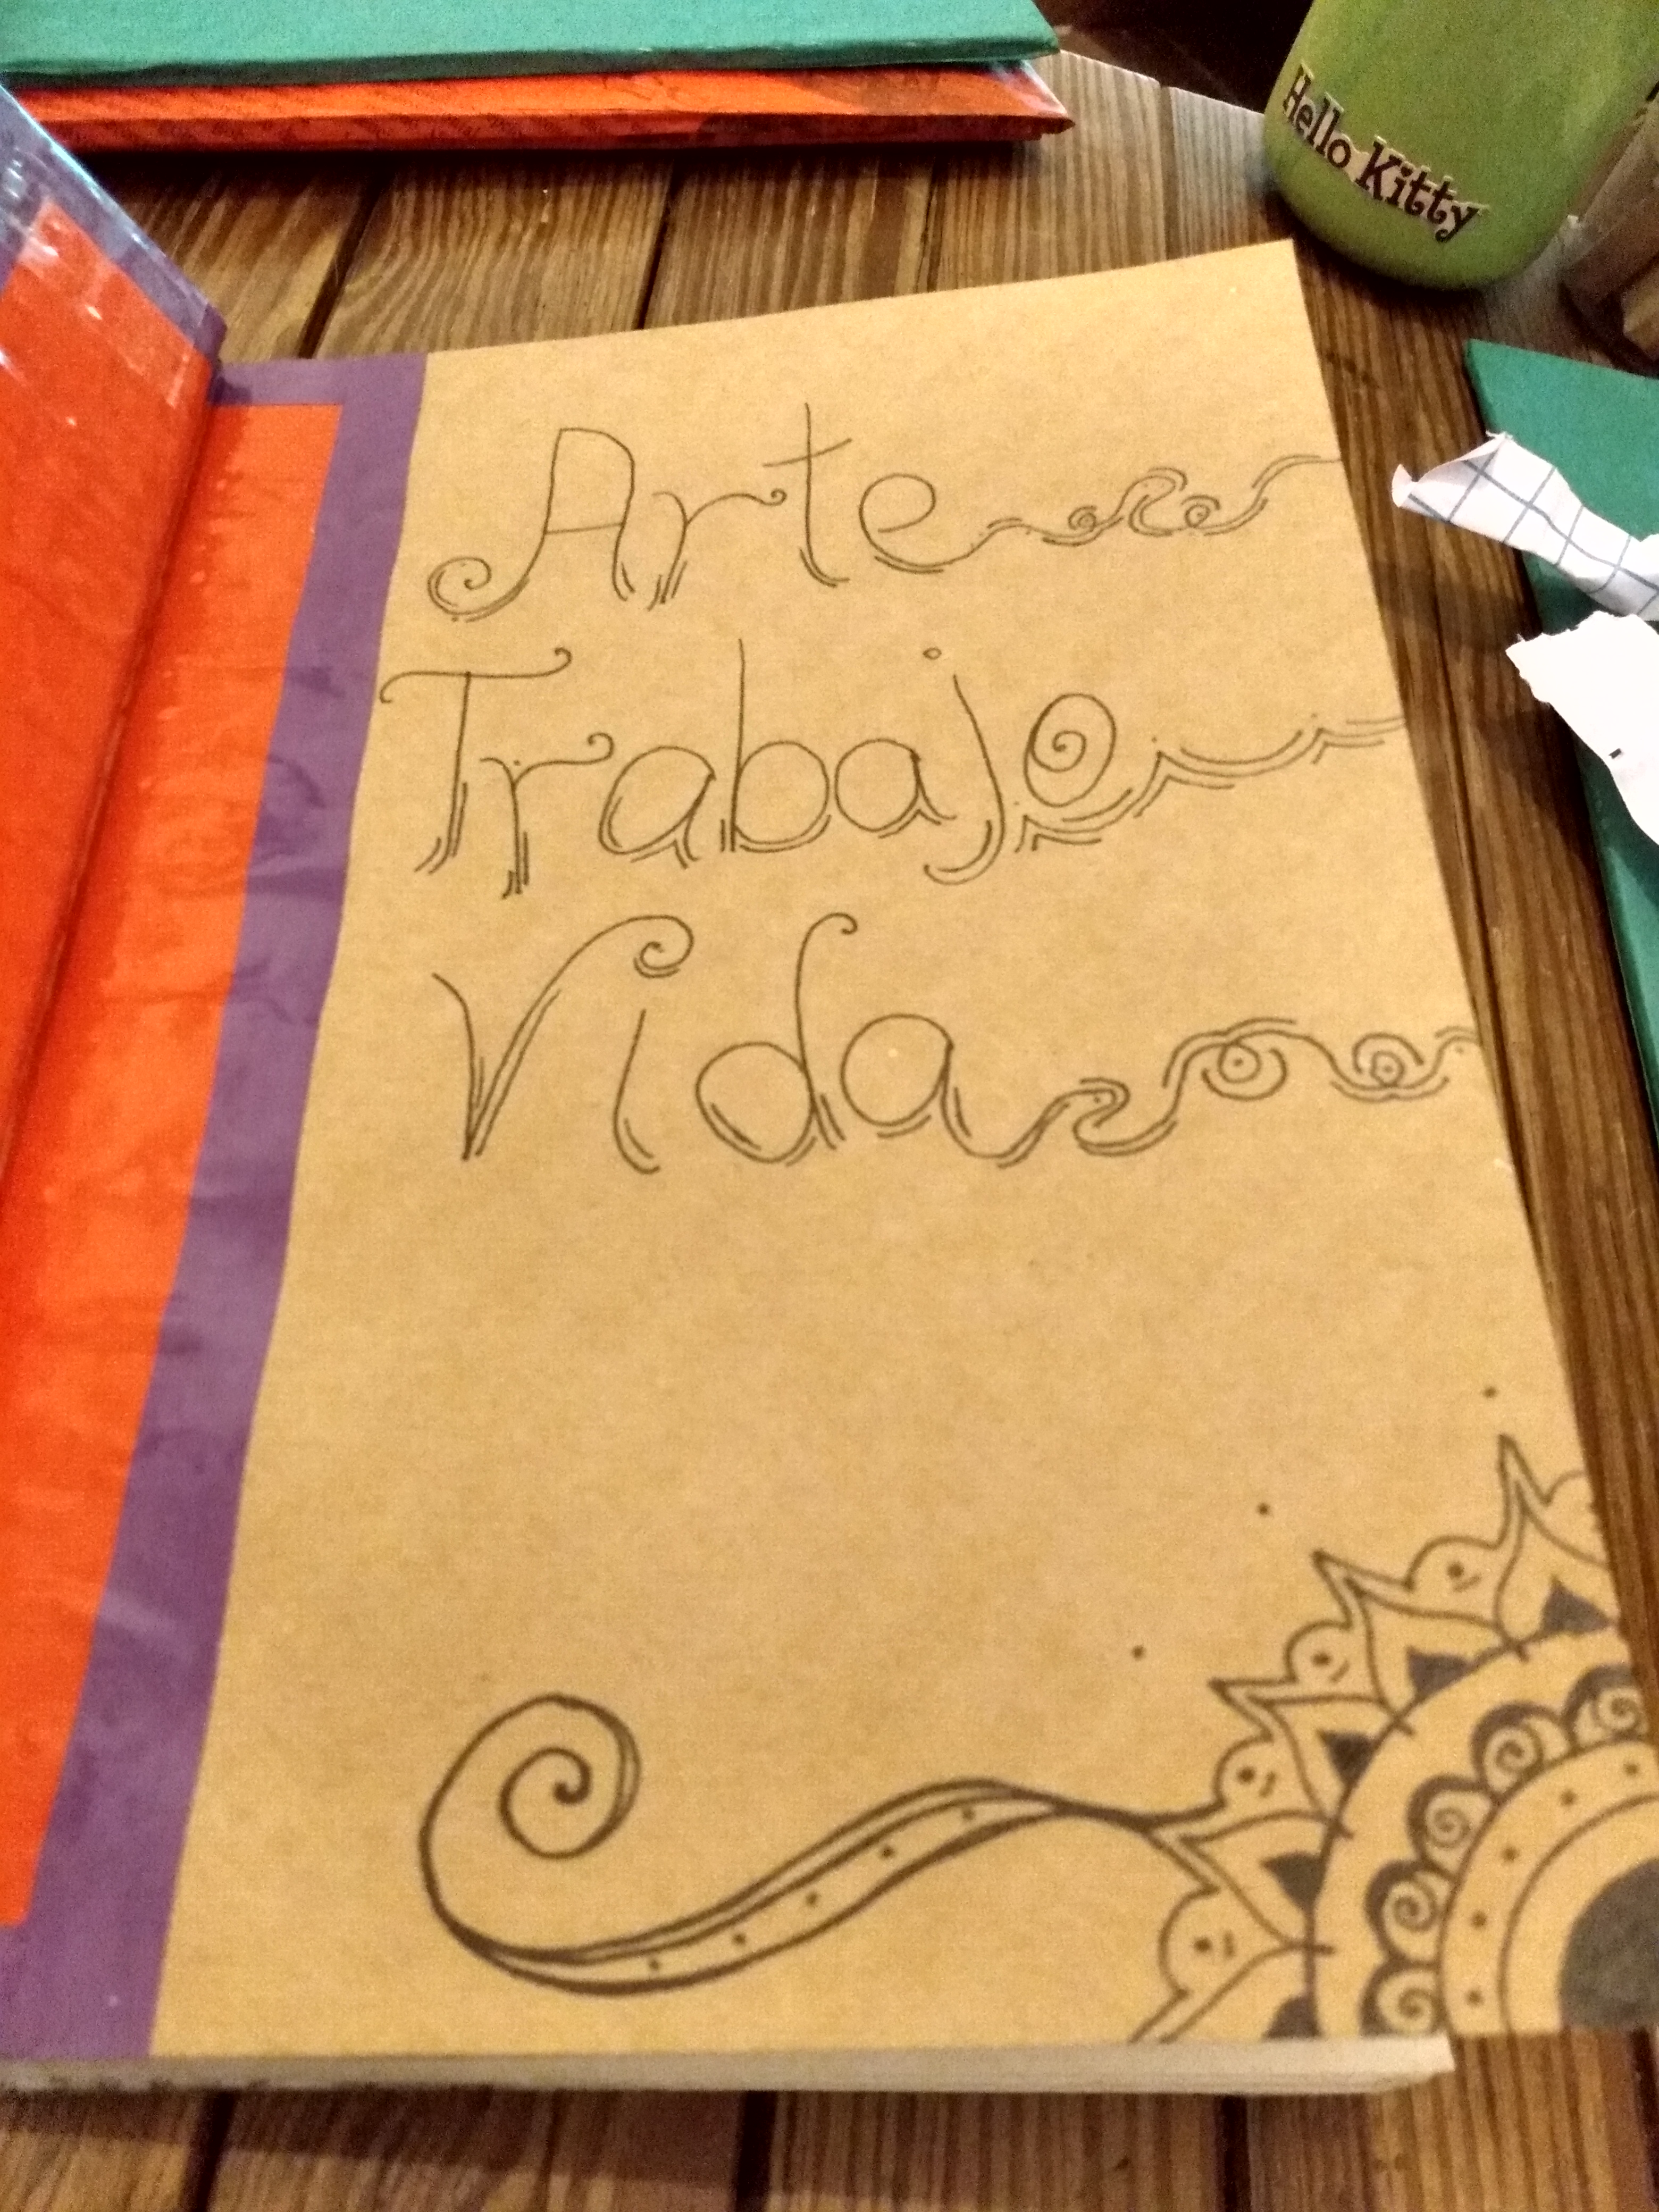 Hello Kitty
Arte
Trabajo
Vida